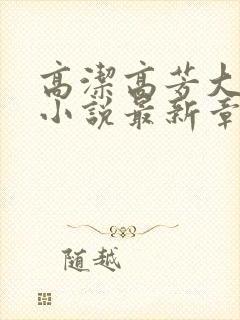 高潔高芳大
小說最新章
随越